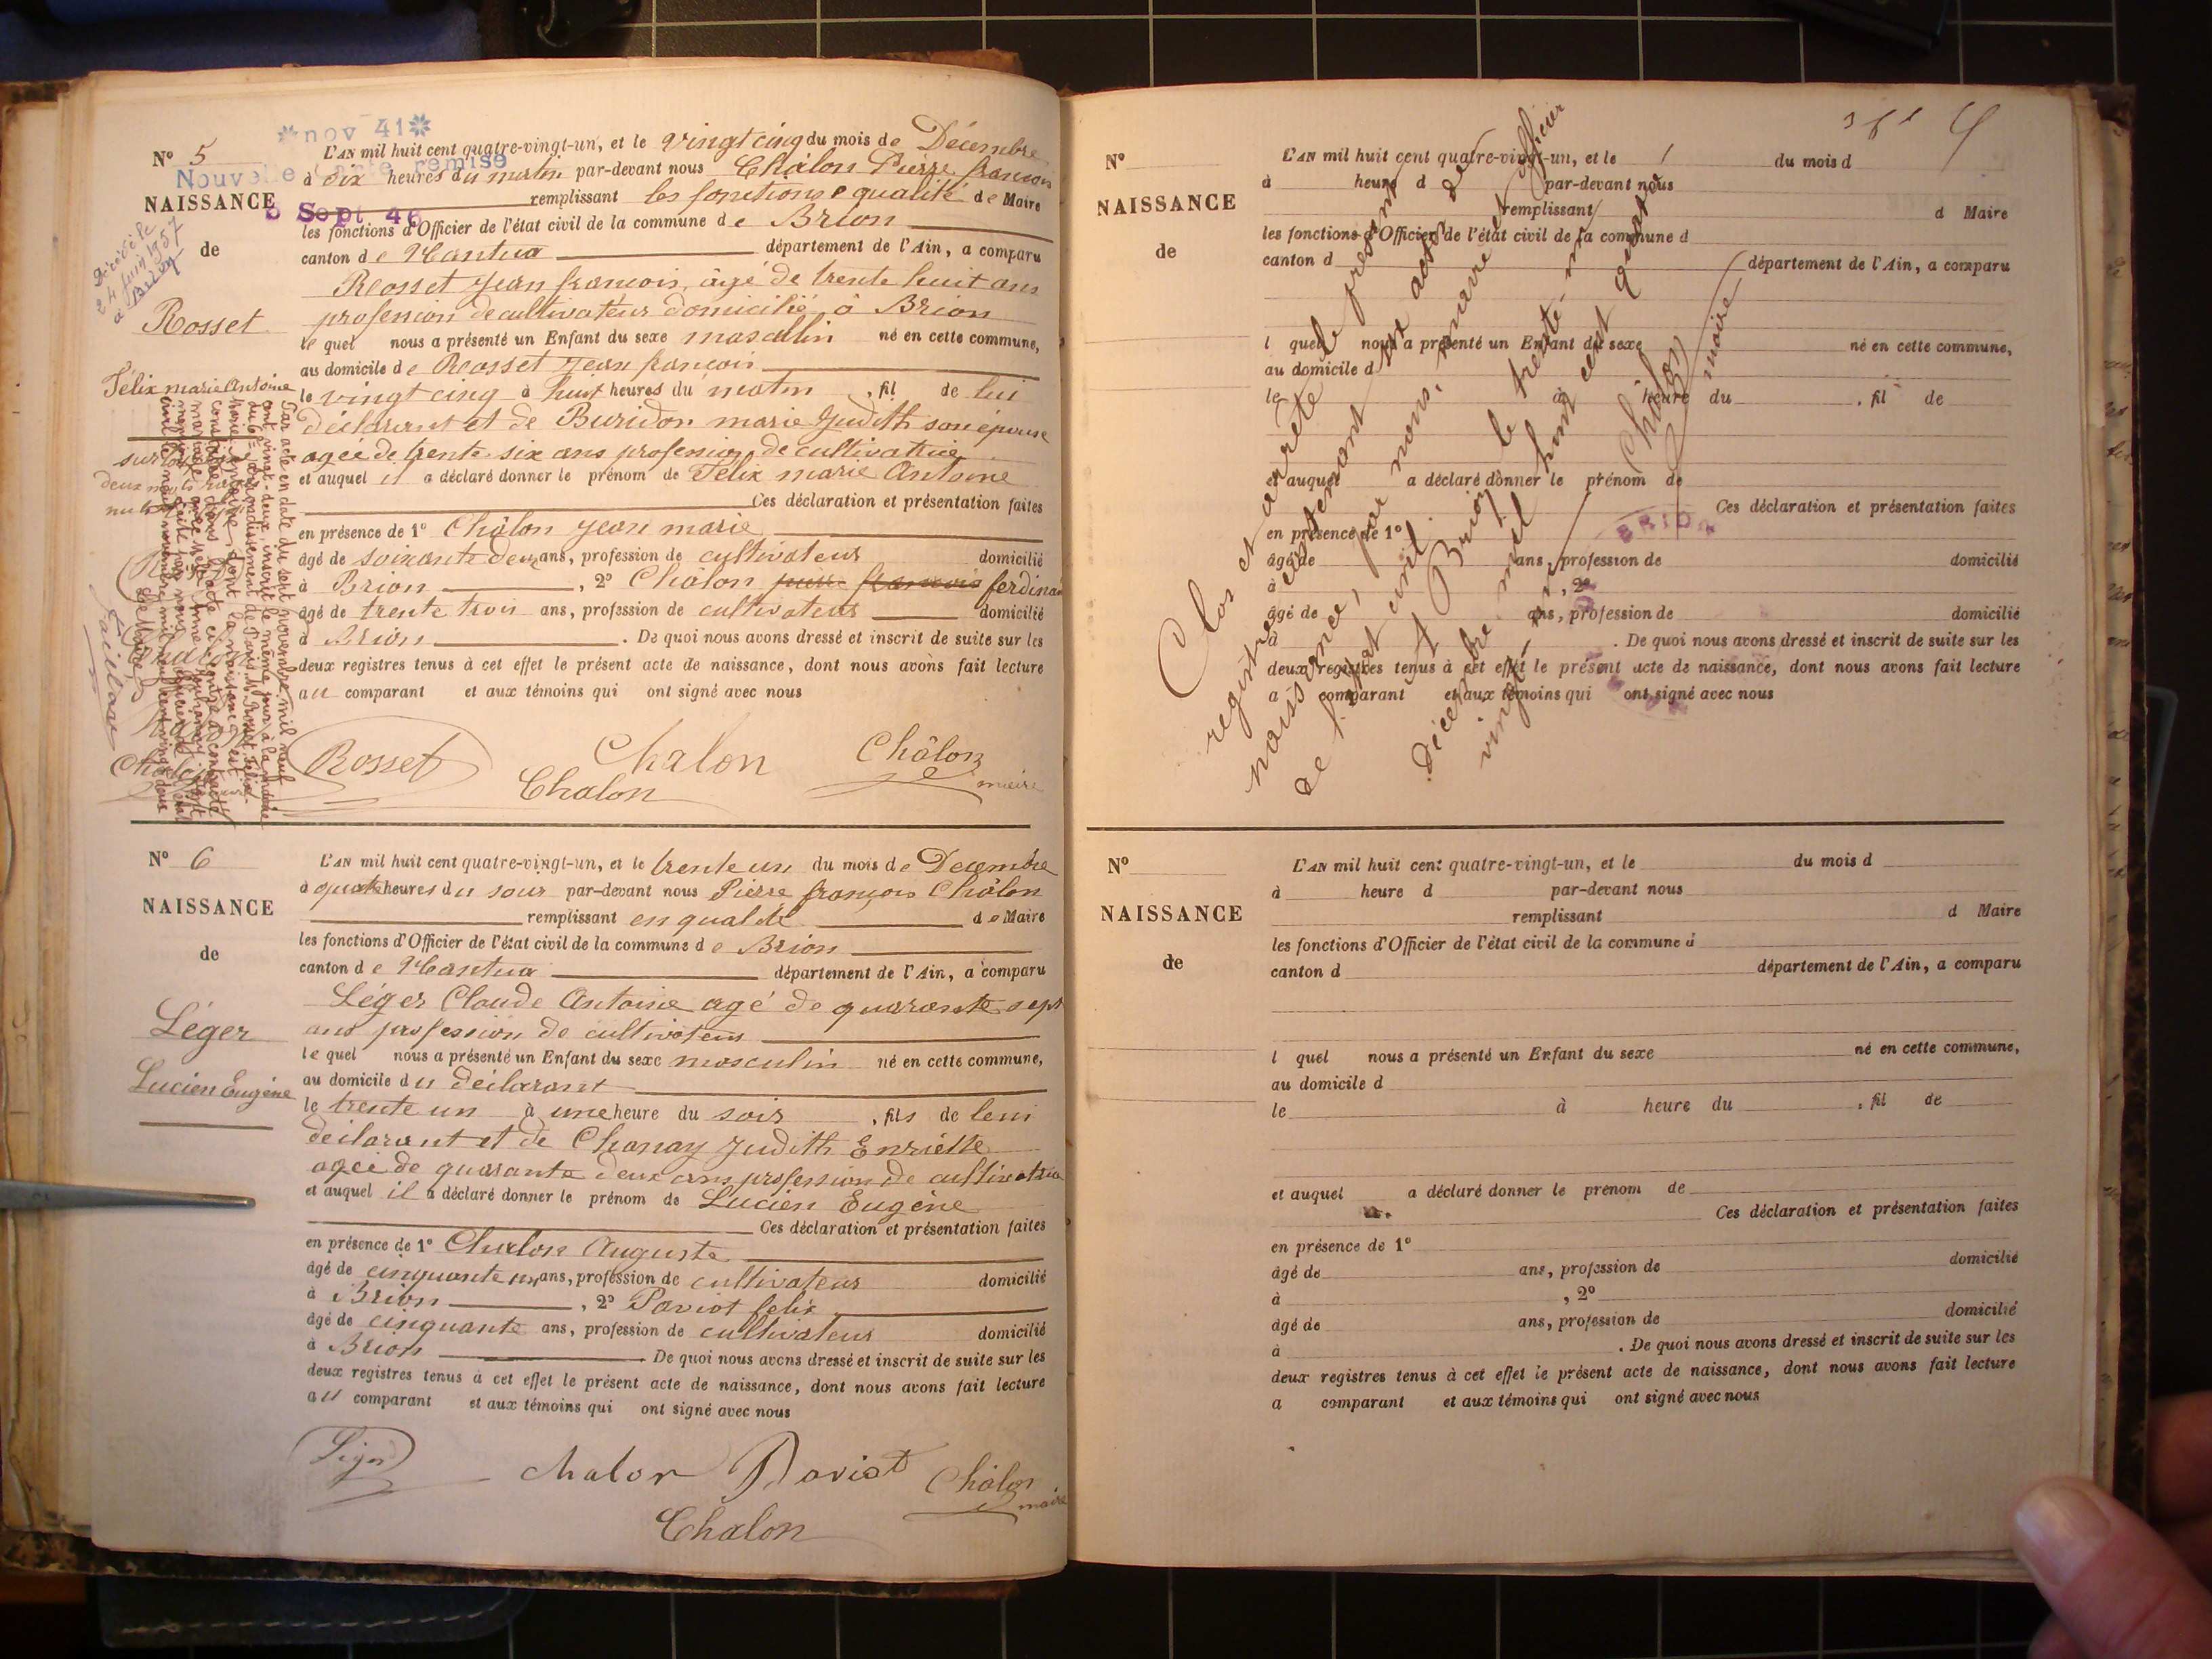 *nov 41*
Nouvelle carte remise
Sept 46
N° 5
NAISSANCE
de
Rosset
Félix marie Antoine
Décédé le
24 juin 1957
à Brion
L'AN mil huit cent quatre-vingt-un, et le vingt cinq du mois de Décembre
à dix heures du matin par-devant nous Châlon Pierre francois
remplissant les fonctions e qualité de Maire
les fonctions d'Officier de l'état civil de la commune de Brion
canton de Nantua département de l'Ain, a comparu
Rosset Jean francois, âgé de trente huit ans
profession de cultivateur domicilié à Brion
le quel nous a présenté un Enfant du sexe masculin né en cette commune,
au domicile de Rosset Jean francois
le vingt cinq à huit heures du matin, fil de lui
déclarant et de Buridon marie Judith son épouse
agée de trente six ans profession de cultivatrice
et auquel il a déclaré donner le prénom de Félix marie Antoine
Ces déclaration et présentation faites
en présence de 1° Châlon Jean marie
âgé de soixante deux ans, profession de cultivateur domicilié
à Brion, 2° Chalon pierre francois ferdinan
âgé de trente trois ans, profession de cultivateur domicilié
à Brion. De quoi nous avons dressé et inscrit de suite sur les
deux registres tenus à cet effet le présent acte de naissance, dont nous avons fait lecture
au comparant et aux témoins qui ont signé avec nous
Rosset Chalon Châlon
Chalon maire
N° 6
NAISSANCE
de
Léger
Lucien Eugène
L'AN mil huit cent quatre-vingt-un, et le trente un du mois de Decembre
à quatre heures du soir par-devant nous Pierre françois Châlon
remplissant en qualité de Maire
les fonctions d'Officier de l'état civil de la commune de Brion
canton de Nantua département de l'Ain, a comparu
Léger Claude Antoine agé de quarante sept
ans profession de cultivateur
le quel nous a présenté un Enfant du sexe masculin né en cette commune,
au domicile du déclarant
le trente un à une heure du soir, fils de leui
déclarant et de Chanay Judith Enriette
agée de quarante deux ans profession de cultivatrice
et auquel il a déclaré donner le prénom de Lucien Eugène
Ces déclaration et présentation faites
en présence de 1° Chalon Auguste
âgé de cinquante un ans, profession de cultivateur domicilié
à Brion, 2° Paviot felix
âgé de cinquante ans, profession de cultivateur domicilié
à Brion. De quoi nous avons dressé et inscrit de suite sur les
deux registres tenus à cet effet le présent acte de naissance, dont nous avons fait lecture
au comparant et aux témoins qui ont signé avec nous
Léger Chalon Paviot Châlon
Chalon maire
N°
NAISSANCE
de
L'AN mil huit cent quatre-vingt-un, et le du mois d
à heure d par-devant nous
remplissant d Maire
les fonctions d'Officier de l'état civil de la commune d
canton d département de l'Ain, a comparu
l quel nous a présenté un Enfant du sexe né en cette commune,
au domicile d
le à heure du, fil de
et auquel a déclaré donner le prénom de
Ces déclaration et présentation faites
en présence de 1°
âgé de ans, profession de domicilié
à, 2°
âgé de ans, profession de domicilié
à. De quoi nous avons dressé et inscrit de suite sur les
deux registres tenus à cet effet le présent acte de naissance, dont nous avons fait lecture
a comparant et aux témoins qui ont signé avec nous
Clos et arrêté le présent
registre contenant six actes de
naissance, par nous, maire et officier
de l'état civil
Brion, le trente-un
décembre mil huit cent quatre
vingt un
Châlon
maire
BRION
N°
NAISSANCE
de
L'AN mil huit cent quatre-vingt-un, et le du mois d
à heure d par-devant nous
remplissant d Maire
les fonctions d'Officier de l'état civil de la commune d
canton d département de l'Ain, a comparu
l quel nous a présenté un Enfant du sexe né en cette commune,
au domicile d
le à heure du, fil de
et auquel a déclaré donner le prenom de
Ces déclaration et présentation faites
en présence de 1°
âgé de ans, profession de domicilié
à, 2°
âgé de ans, profession de domicilié
à. De quoi nous avons dressé et inscrit de suite sur les
deux registres tenus à cet effet le présent acte de naissance, dont nous avons fait lecture
a comparant et aux témoins qui ont signé avec nous